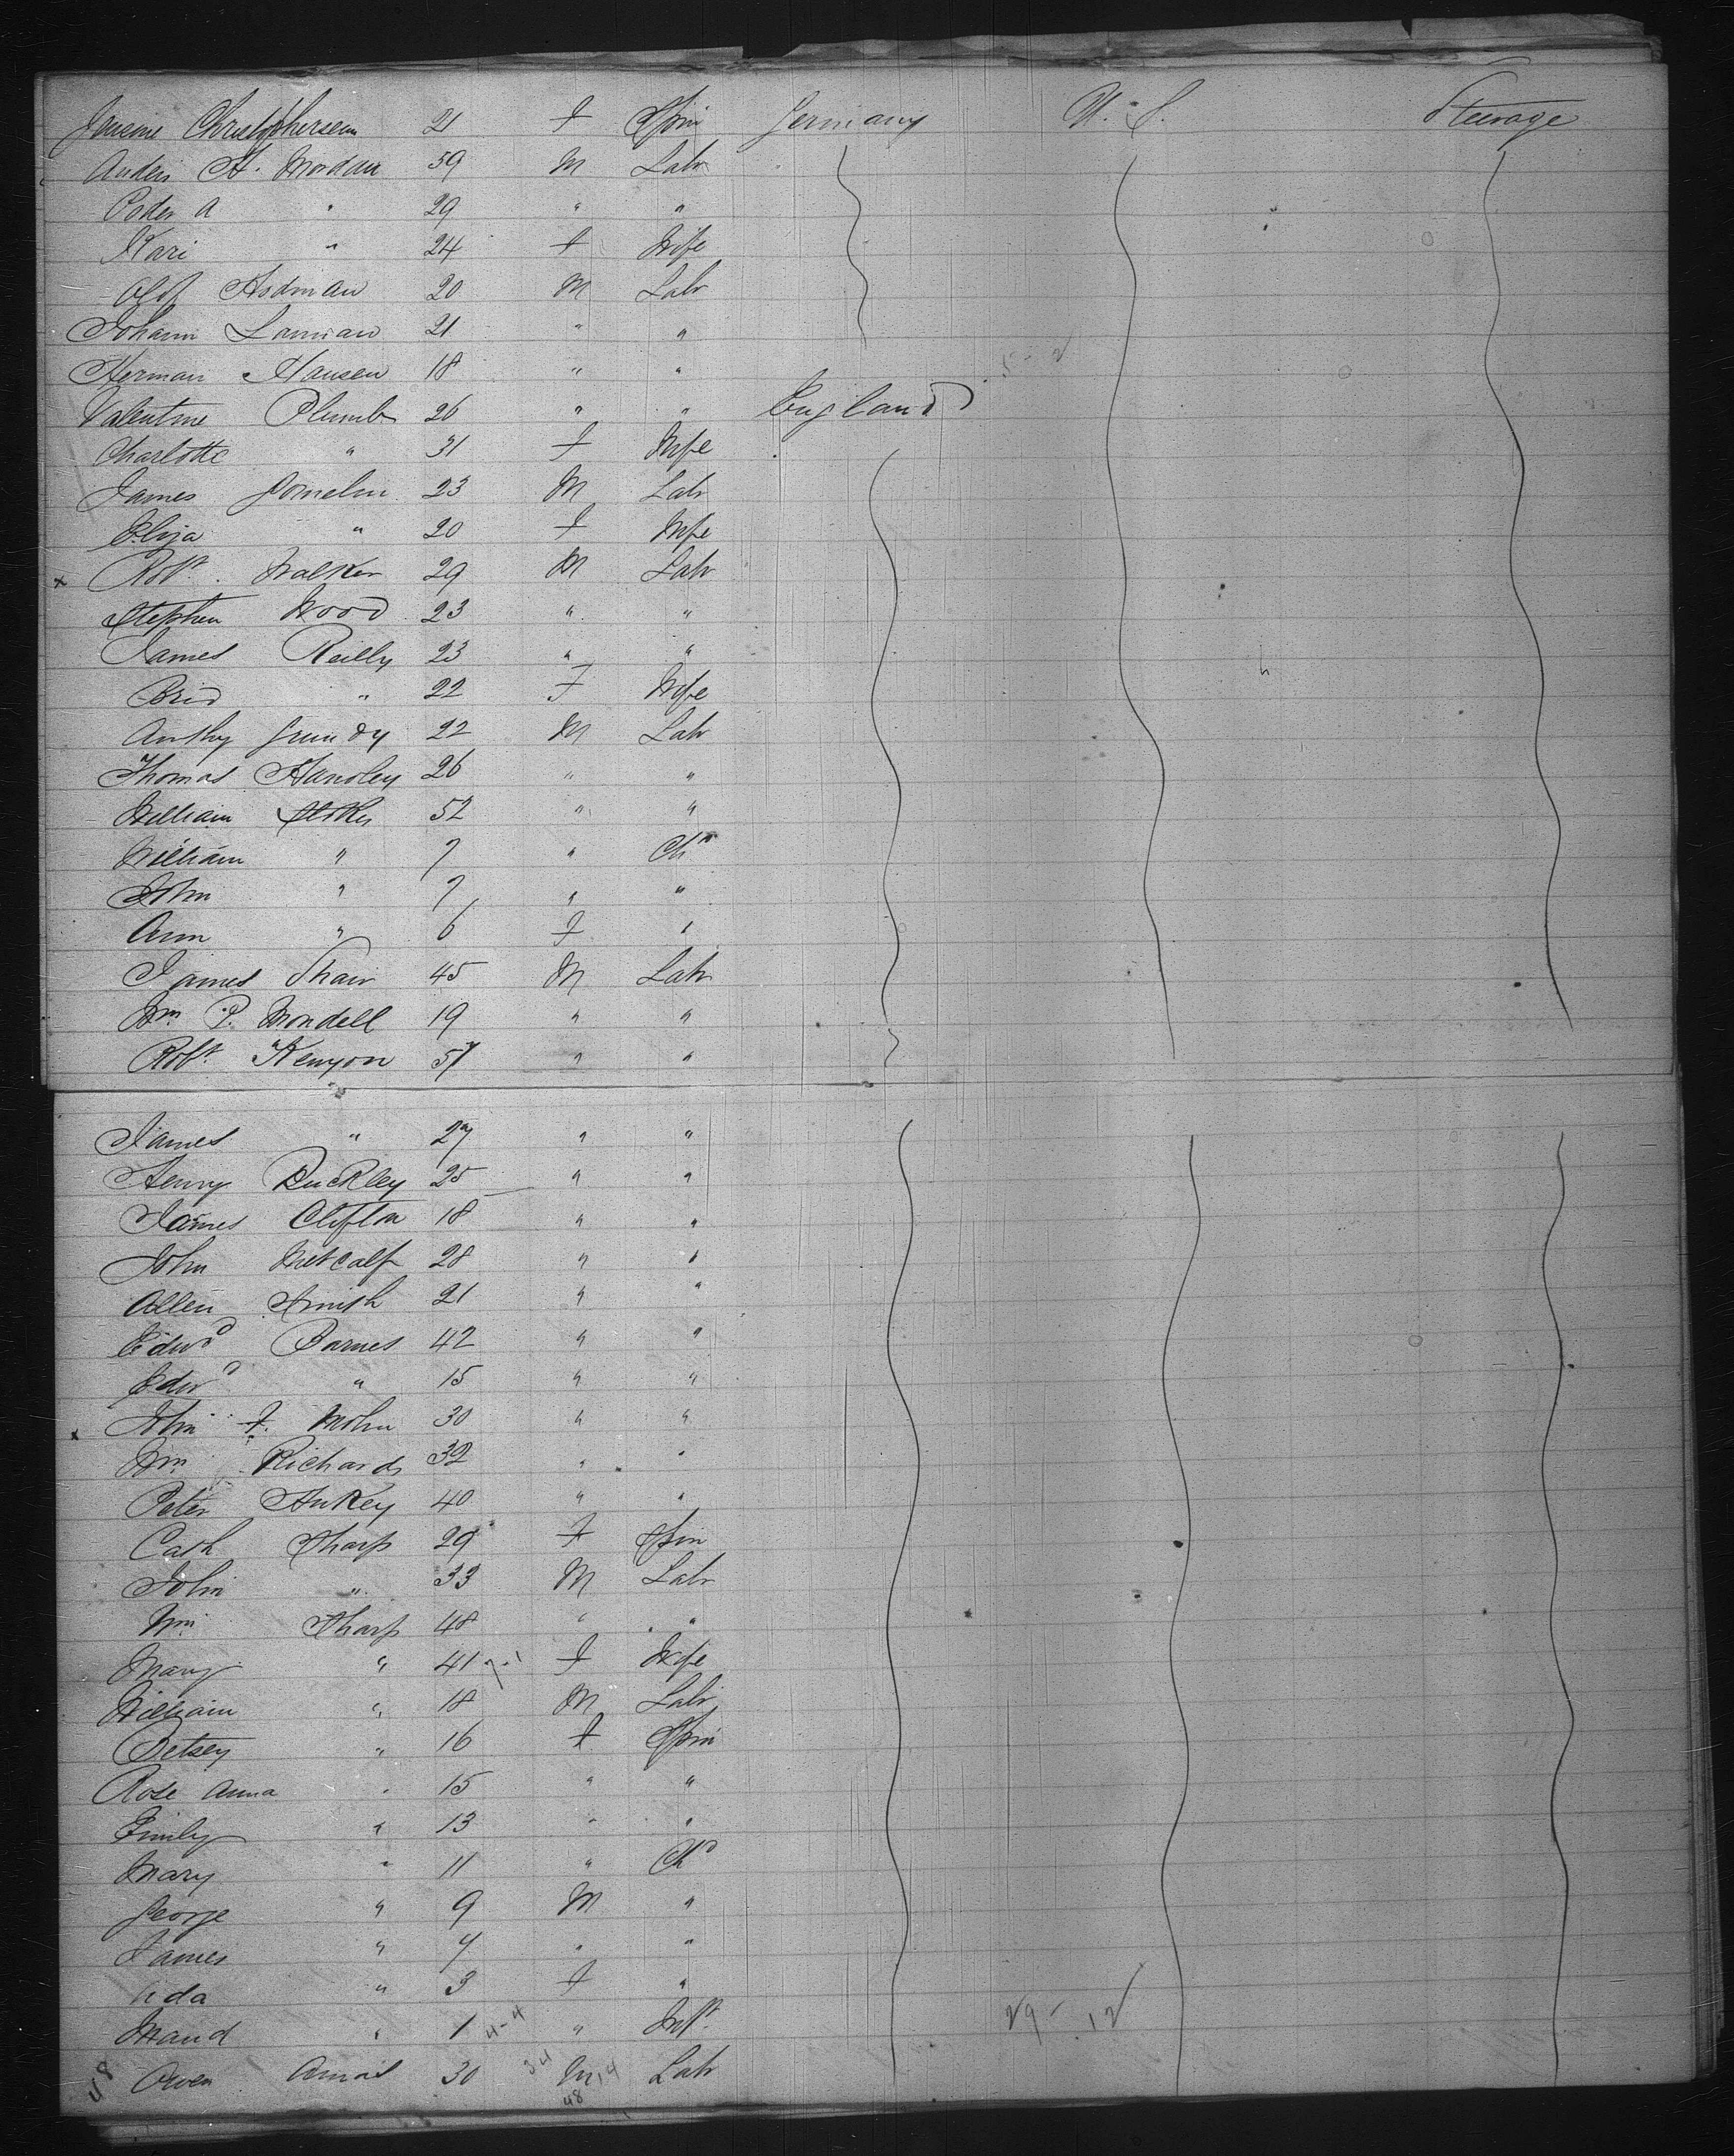 Christophersen 21 f Spin Germany U. S. Steerage
A. 59 M Labr
Peder A " 29 " "
Kari " 24 f Wife
Olof 20 M Labr
Johann 21 " "
Herman Hansen 18 " "
Valentine Plumb 26 " " England
Charlotte " 31 f Wife
James 23 M Labr
Eliza " 20 f Wife
x Robt. Walker 29 M Labr
Stephen Wood 23 " "
James Reilly 23 " "
Brid " 22 F Wife
Anthy Grundy 22 M Labr
Thomas Handley 26 " "
William 52 " "
William " 7 " Chd
John " 7 " "
Ann " 6 f "
James Shaw 45 M Labr
Wm. P. Wondell 19 " "
Robt. Kenyon 57 " "
James " 27 " "
Henry Buckley 25 " "
James Clifton 18 " "
John Metcalf 28 " "
Allen Smith 21 " "
Edwd Barnes 42 " "
Edwd " 15 " "
x John F. 30 " "
Wm. Richards 32 " "
Peter 40 " "
Cath Sharp 29 f Spin
John " 33 M Labr
Wm. Sharp 48 " "
Mary " 41 7-1 f Wife
William " 18 M Labr
Betsey " 16 f Spin
Rose Anna " 15 " "
Emily " 13 " "
Mary " 11 " Chd
George " 9 M "
James " 7 " "
Ada " 3 f "
Maud " 1 4-4 " Inft. 29-12
48 Owen 30 34 M 14 Labr
48